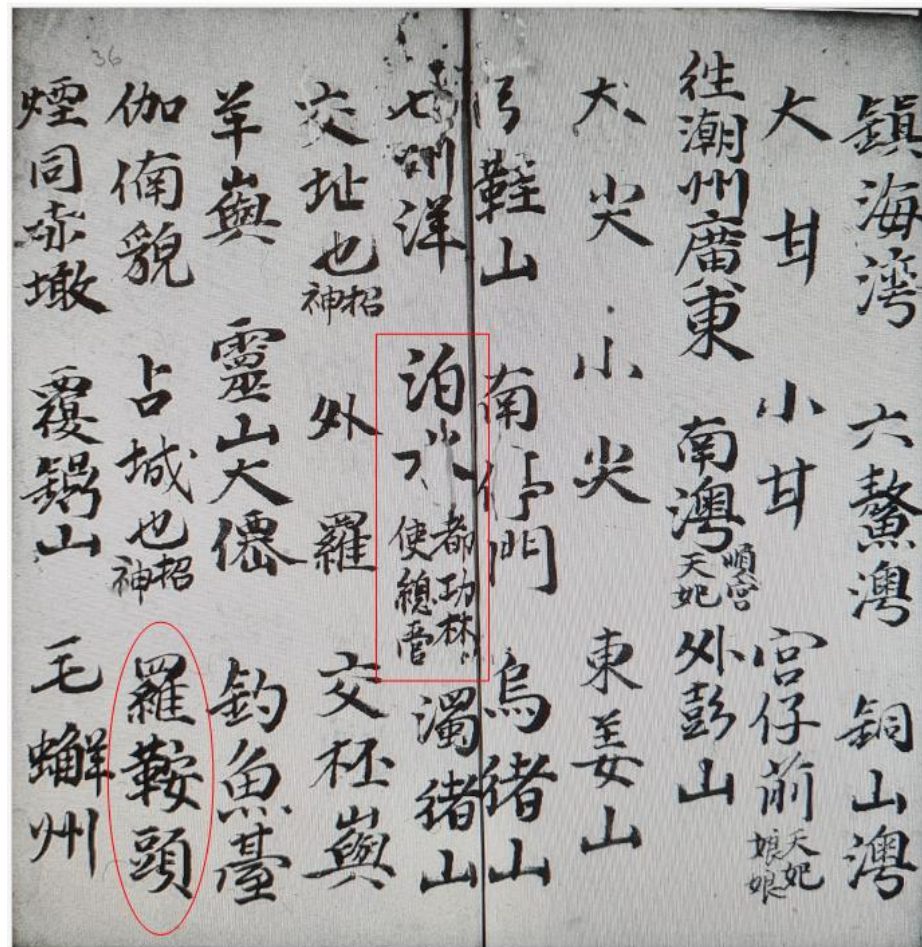 鎮海湾 六鰲澳 铜山澳
大甘 小甘 順宫 宫仔前 天妃娘娘
徃潮州廣東 南澳 天妃 外彭山
大尖 小尖 東姜山
弓鞋山 南停門 烏猪山
七州洋 泊水 都功林 使總管 濁猪山
交址也 招神 外羅 交杯嶼
羊嶼 靈山大僊 釣魚臺
伽倆貌 占城也 招神 羅鞍頭
煙同赤墩 覆鐤山 毛蠏州
36